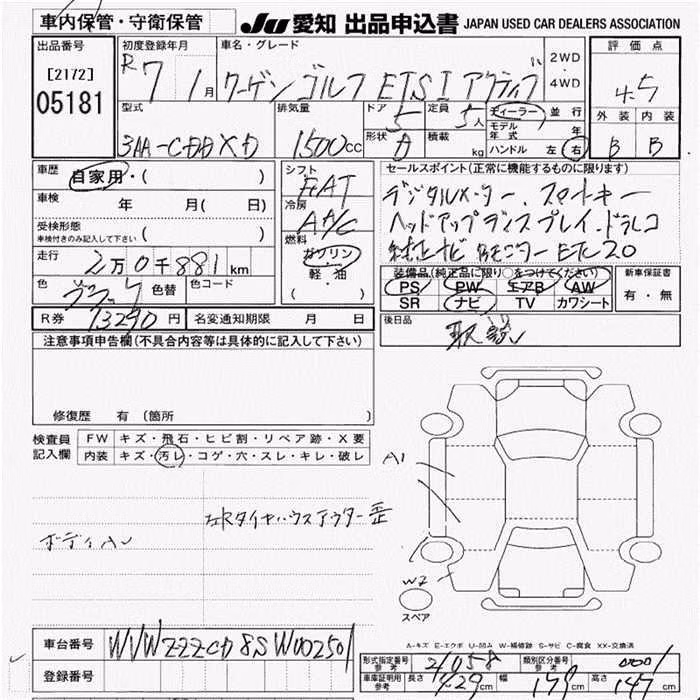 車内保管・守衛保管 JU 愛知 出品申込書 JAPAN USED CAR DEALERS ASSOCIATION
出品番号 初度登録年月 車名・グレード 2WD・4WD 評価点
[2172] R7 1月 ワーゲン ゴルフ ETSI アクティブ 4.5
05181
型式 排気量 ドア 5 定員 5人 ディーラー 並行 外装 内装
3AA-CDDXD 1500cc 形状 積載 kg モデル年式 年 B B
ハンドル 左 右
車歴 自家用・( ) シフト FAT セールスポイント(正常に機能するものに限ります)
車検 年 月( 日) 冷房 A/C デジタルメーター、スマートキー
受検形態 ( ) ヘッドアップディスプレイ、ドラレコ
車検付きのみ記入して下さい 燃料 ガソリン 純正ナビ Bモニター ETC2.0
走行 2万0千881km 軽・油 ・( )
装備品(純正品に限り○をつけてください) 新車保証書
色 ブラック 色替 色コード PS PW エアB AW 有・無
SR ナビ TV カワシート
R券 13290円 名変通知期限 月 日 後日品 取説
注意事項申告欄(不具合内容等は具体的に記入して下さい)
修復歴 有 (箇所 )
検査員記入欄 FW キズ・飛石・ヒビ割・リペア跡・X要
内装 キズ・汚レ・コゲ・穴・スレ・キレ・破レ
A1
ボディAU
W2
スペア
A-キズ E-エクボ U-凹み W-補修跡 S-サビ C-腐食 XX-交換済
車台番号 WVWZZZCD8SW002501
登録番号
形式指定番号 参考 21058 類別区分番号 参考 0001
車庫証明用 参考 長さ 429cm 幅 179cm 高さ 147cm